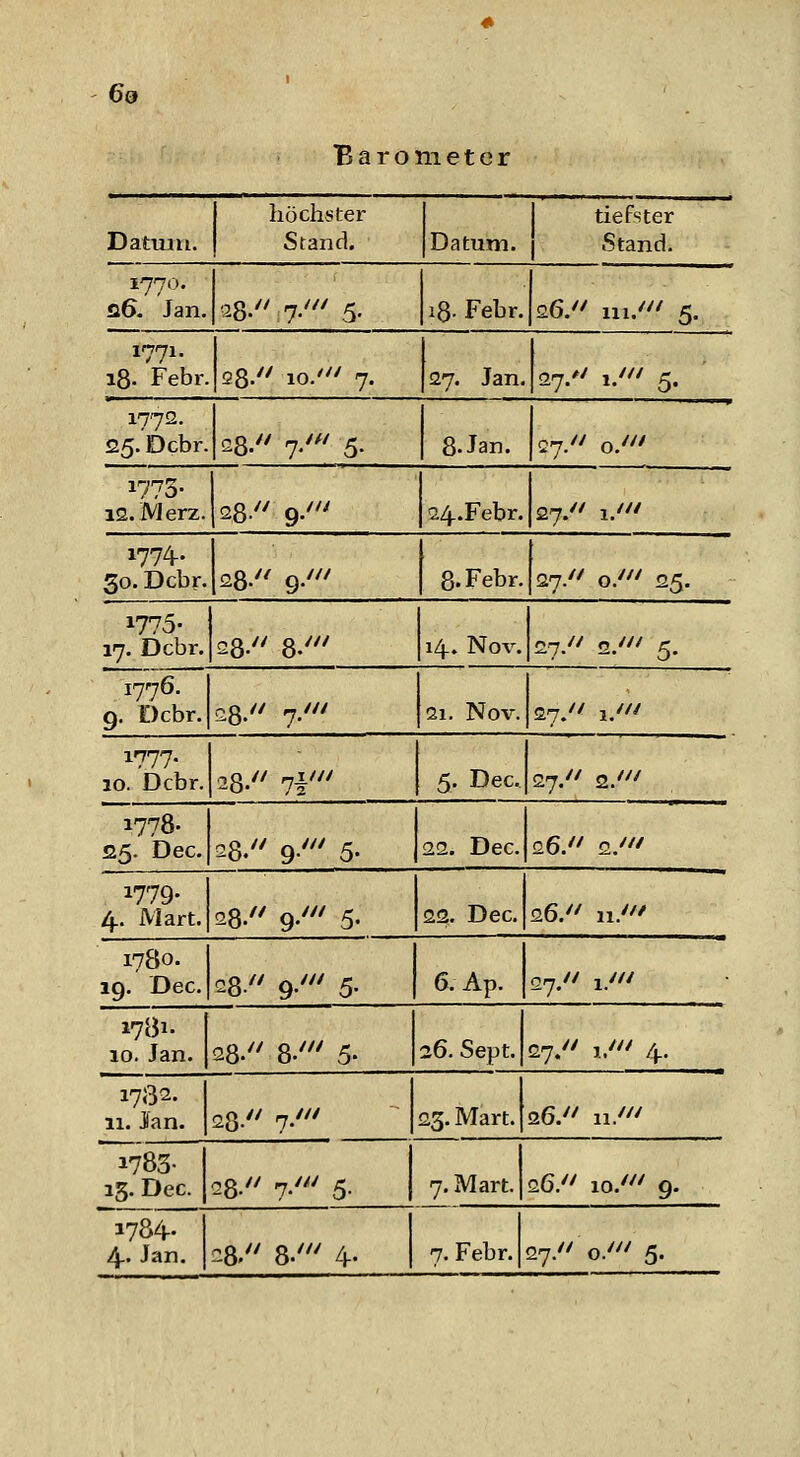 60
Barometer
höchster tiefster
Datum. Stand. Datum. Stand.
1770.
26. Jan. 28.″ 7.‴ 5. 18. Febr. 26.″ 111.‴ 5.
1771.
18. Febr. 28.″ 10.‴ 7. 27. Jan. 27.″ 1.‴ 5.
1772.
25. Dcbr. 28.″ 7.‴ 5. 8. Jan. 27.″ 0.‴
1773.
12. Merz. 28.″ 9.‴ 24. Febr. 27.″ 1.‴
1774.
30. Dcbr. 28.″ 9.‴ 8. Febr. 27.″ 0.‴ 25.
1775.
17. Dcbr. 28.″ 8.‴ 14. Nov. 27.″ 2.‴ 5.
1776.
9. Dcbr. 28.″ 7.‴ 21. Nov. 27.″ 1.‴
1777.
10. Dcbr. 28.″ 7½‴ 5. Dec. 27.″ 2.‴
1778.
25. Dec. 28.″ 9.‴ 5. 22. Dec. 26.″ 2.‴
1779.
4. Mart. 28.″ 9.‴ 5. 22. Dec. 26.″ 11.‴
1780.
19. Dec. 28.″ 9.‴ 5. 6. Ap. 27.″ 1.‴
1781.
10. Jan. 28.″ 8.‴ 5. 26. Sept. 27.″ 1.‴ 4.
1782.
11. Jan. 28.″ 7.‴ 23. Mart. 26.″ 11.‴
1783.
13. Dec. 28.″ 7.‴ 5. 7. Mart. 26.″ 10.‴ 9.
1784.
4. Jan. 28.″ 8.‴ 4. 7. Febr. 27.″ 0.‴ 5.